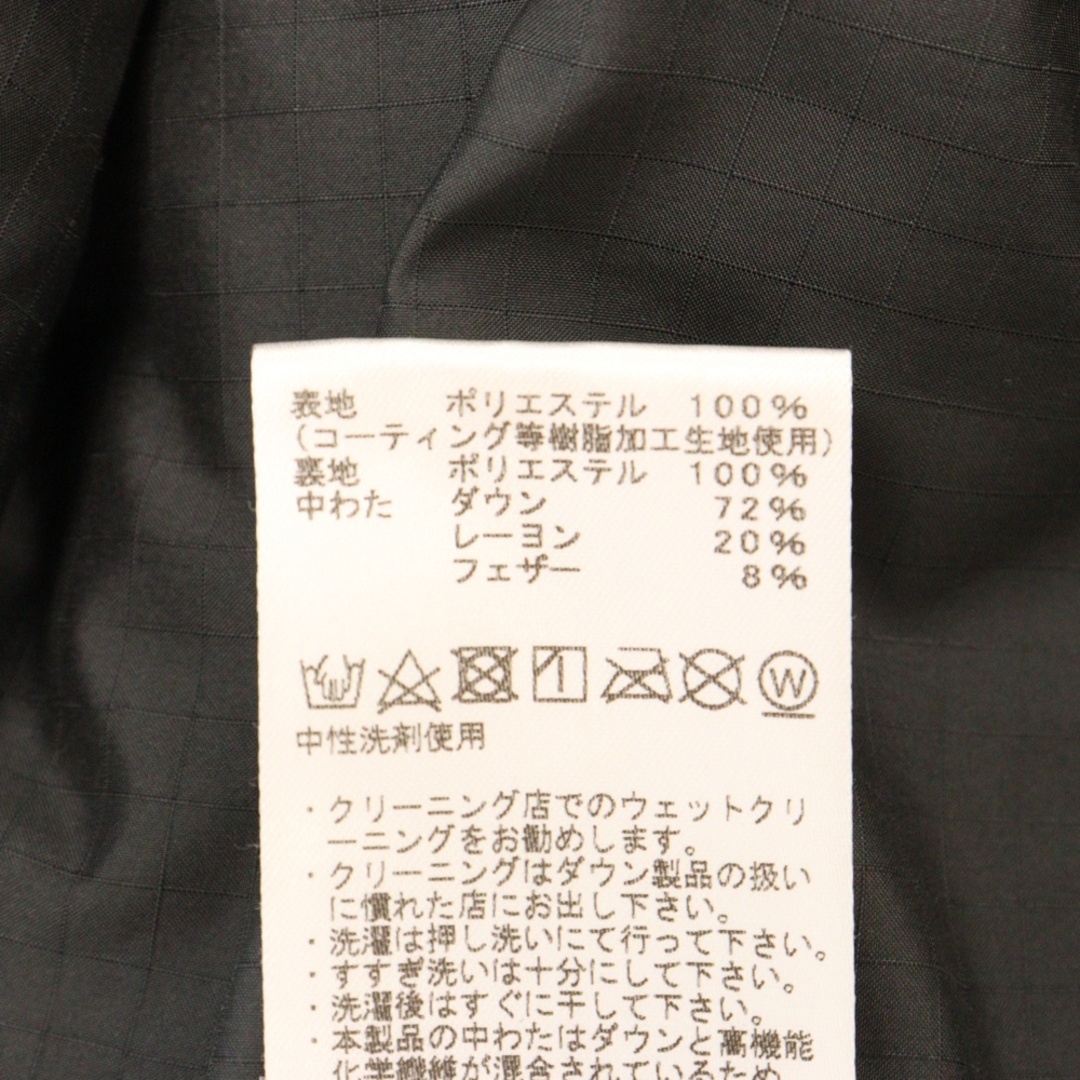 表地 ポリエステル 100%
(コーティング等樹脂加工生地使用)
裏地 ポリエステル 100%
中わた ダウン 72%
レーヨン 20%
フェザー 8%
W
中性洗剤使用
・クリーニング店でのウェットクリ
ーニングをお勧めします。
・クリーニングはダウン製品の扱い
に慣れた店にお出し下さい。
・洗濯は押し洗いにて行って下さい。
・すすぎ洗いは十分にして下さい。
・洗濯後はすぐに干して下さい。
・本製品の中わたはダウンと高機能
化学繊維が混合されているため